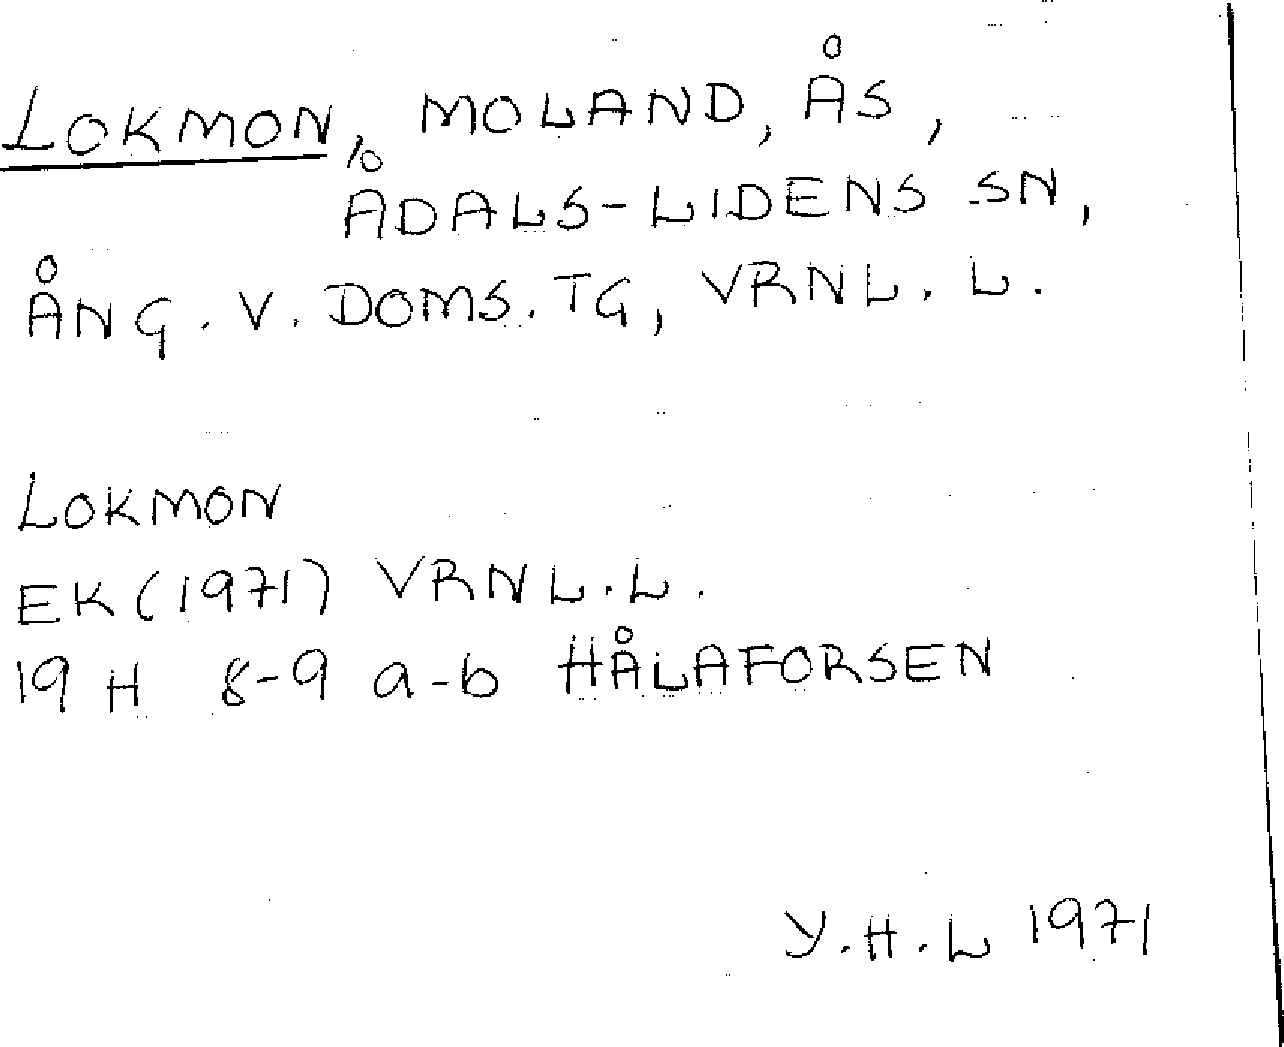 LOKMON, MOLAND, ÅS,
ÅDALS-LIDENS SN,
ÅNG. V. DOMS. TG, VRNL. L.
LOKMON
EK (1971) VRNL.L.
19 H 8-9 a-b HÅLAFORSEN
Y.H.L 1971